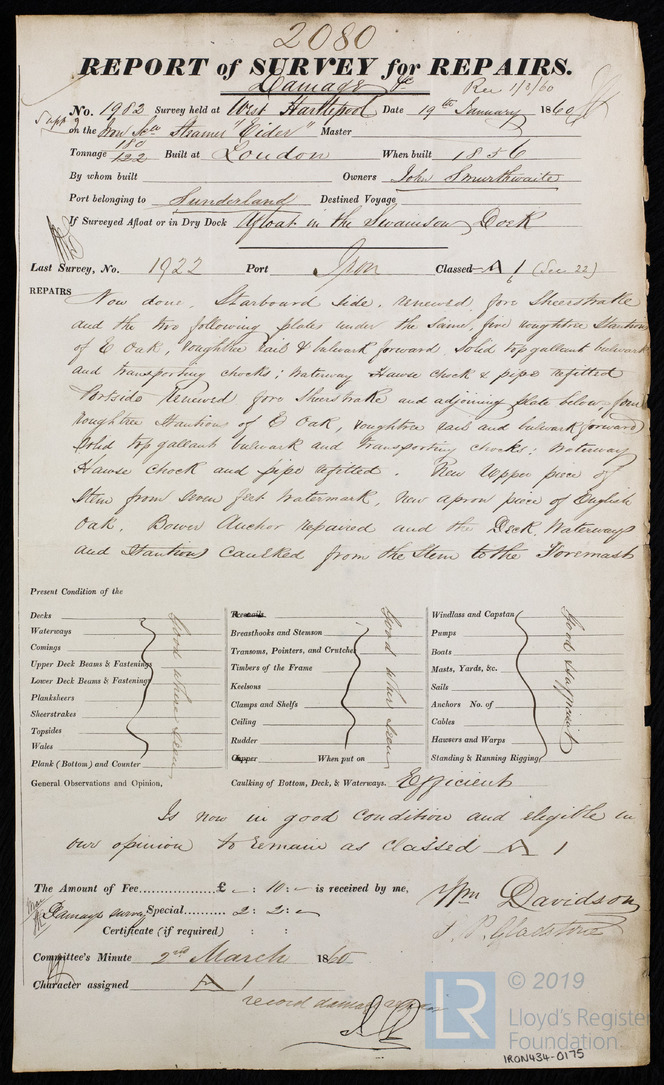 2080
REPORT of SURVEY for REPAIRS.
Damage &c
Rec 1/3/60
No. 1983 Survey held at West Hartlepool Date 19th January 1860
on the Iron Scw Steamer "Eider" Master
Tonnage 180 122 Built at London When built 1856
By whom built Owners John Smurthwaite
Port belonging to Sunderland Destined Voyage
If Surveyed Afloat or in Dry Dock Afloat in the Swainson Dock
Last Survey, No. 1922 Port Iron Classed A 1 (Sec 22)
REPAIRS Now done, Starboard Side, renewed fore Sheerstrake
and the two following plates under the Same, five roughtree Stantions
of E Oak, roughtree rail & bulwark forward, Solid topgallant bulwark
and transporting chocks; Waterway Hawse Chock & pipe refitted
Portside renewed fore Sheerstrake and adjoining plate below, four
roughtree Stantions of E Oak, roughtree rail and bulwark forward
Solid top gallant bulwark and transporting chocks; Waterway
Hawse Chock and pipe refitted. New Upper piece of
Stem from Seven feet Watermark, new apron piece of English
Oak, Bower Anchor repaired and the Deck, Waterways
and Stantions caulked from the Stem to the Foremast
Present Condition of the
Decks
Waterways
Comings
Upper Deck Beams & Fastenings
Lower Deck Beams & Fastenings
Planksheers
Sheerstrakes
Topsides
Wales
Plank (Bottom) and Counter
Good where seen
Treenails
Breasthooks and Stemson
Transoms, Pointers, and Crutches
Timbers of the Frame
Keelsons
Clamps and Shelfs
Ceiling
Rudder
Copper When put on
Good where seen
Windlass and Capstan
Pumps
Boats
Masts, Yards, &c.
Sails
Anchors No. of
Cables
Hawsers and Warps
Standing & Running Rigging
Good & sufficient
General Observations and Opinion,
Caulking of Bottom, Deck, & Waterways. Efficient
Is now in good condition and eligible in
our opinion to remain as classed A 1
The Amount of Fee £ - : 10 : - is received by me,
Damage survey Special 2 : 2 : -
Certificate (if required) : :
Wm Davidson
T. P. Gladstone
Committee's Minute 2nd March 1860
Character assigned A 1
record damage repairs
© 2019
LR
Lloyd's Register
Foundation
IRON434-0175